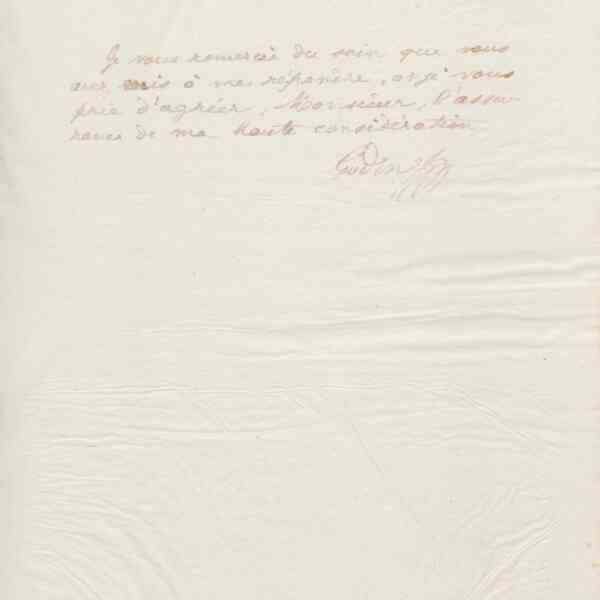 Je vous remercie du soin que vous
avez mis à me répondre, et je vous
prie d'agréer, Monsieur, l'assu-
rance de ma haute considération
Godin